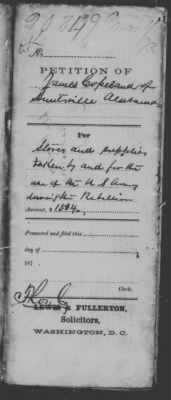 No.
PETITION OF
James Copeland of
Huntsville Alabama
For
Stores and supplies
taken by and for the
use of the U S Army
during the Rebellion
Amount, $ 1584
Presented and filed this
day of
187
Clerk.
LEWIS & FULLERTON,
Solicitors,
WASHINGTON, D.C.